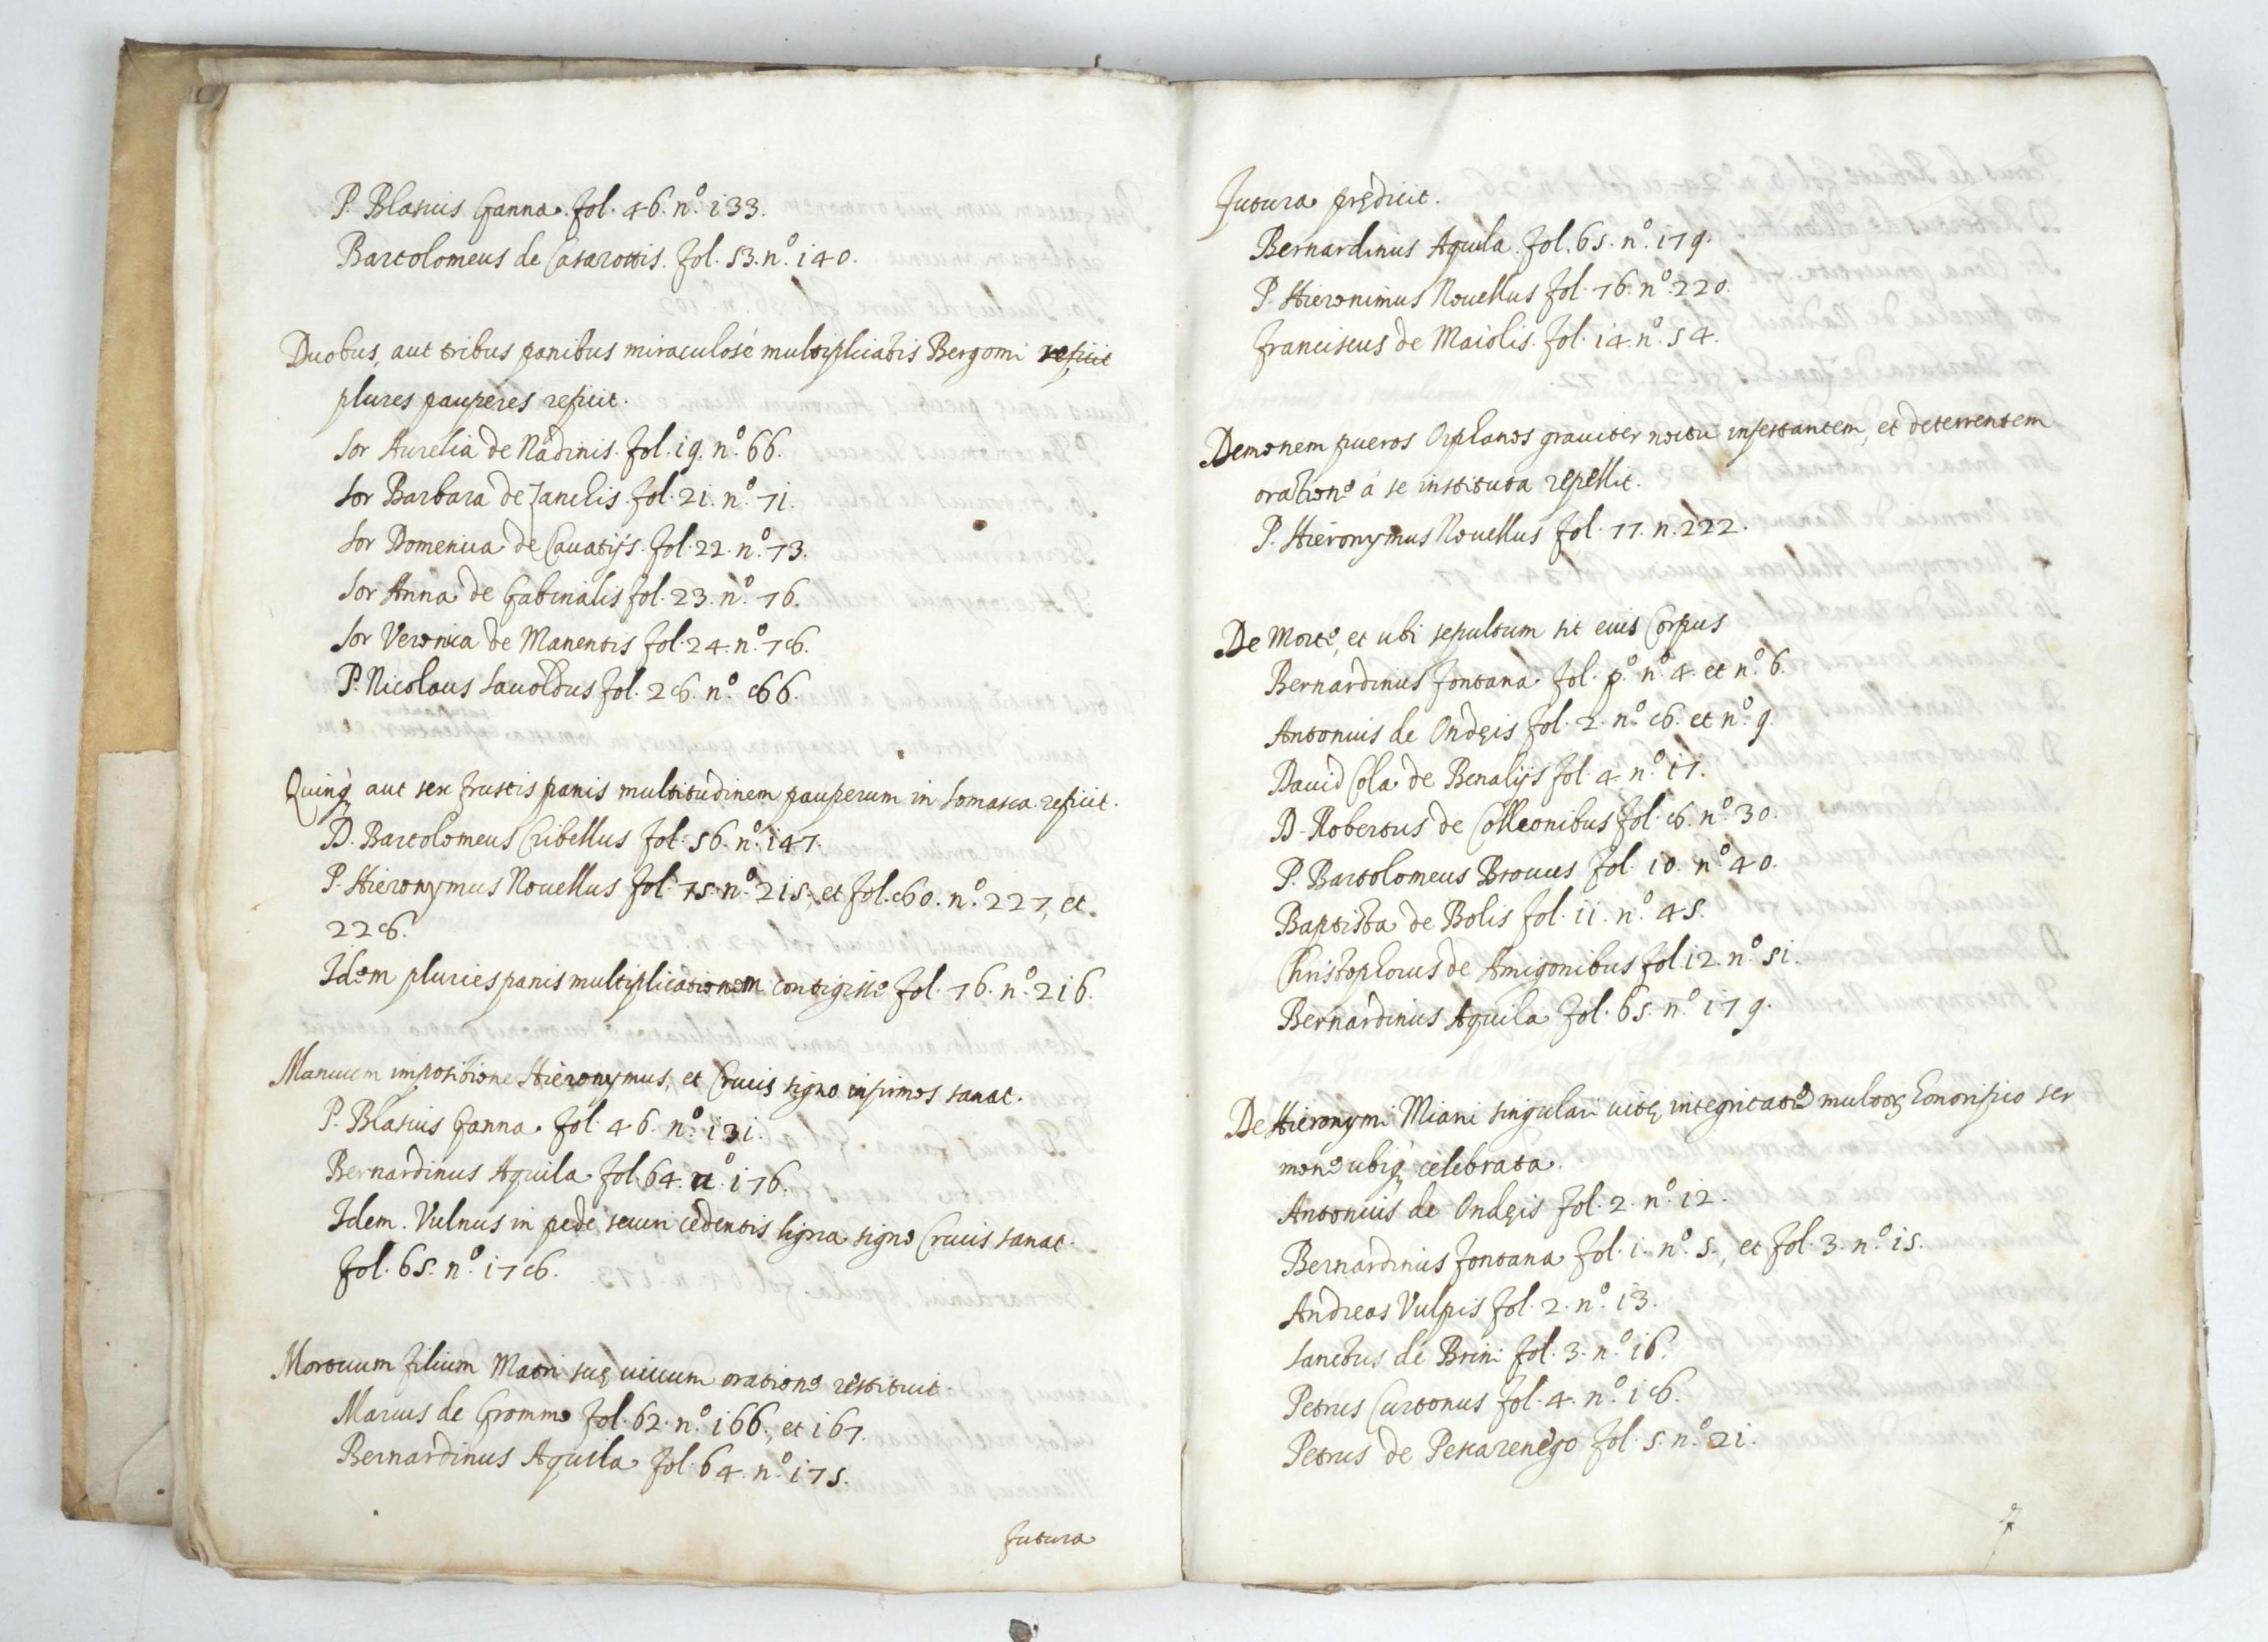 P. Blasius Ganna. fol. 46. nº. 133.
Bartolomeus de Casarottis. fol. 53. nº. 140.
Duobus, aut tribus panibus miraculosé multiplicatis Bergomi reficit
plures pauperes reficit.
Sor Aurelia de Nadinis. fol. 19. nº. 66.
Sor Barbara de Zanchis. fol. 21. nº. 71.
Sor Domenica de Cavatijs. fol. 22. nº. 73.
Sor Anna de Gabinalis fol. 23. nº. 76.
Sor Veronica de Manentis fol. 24. nº. 78.
P. Nicolaus Savoldus fol. 28. nº. 86.
Quinq; aut sex frustis panis multitudinem pauperum in Somasca reficit.
D. Bartolomeus Cribellus fol. 56. nº. 147.
P. Hieronymus Novellus fol. 75. nº. 215., et fol. 80. nº. 227, et
228.
Idem pluries panis multiplicationem contigisse fol. 76. nº. 216.
Manuum impositione Hieronymus, et Crucis signo infirmos sanat.
P. Blasius Ganna. fol. 46. nº. 131.
Bernardinus Aquila. fol. 64. nº. 176.
Idem. Vulnus in pede securi cedentis ligna signo Crucis sanat.
fol. 65. nº. 178.
Mortuum filium Matri suę vivum oratione restituit.
Marcus de Grommo fol. 62. nº. 166., et 167.
Bernardinus Aquila fol. 64. nº. 175.
futura
Futura prędicit.
Bernardinus Aquila. fol. 65. nº. 179.
P. Hieronimus Novellus fol. 76. nº. 220.
Franciscus de Maiolis. fol. 14. nº. 54.
Demonem pueros Orphanos graviter noctu infestantem, et deterrentem
oratione á se instituta repellit.
P. Hieronymus Novellus fol. 77. n. 222.
De Morte, et ubi sepultum sit eius Corpus
Bernardinus Fontana fol. pº. nº. 4. et nº. 6.
Antonius de Ondeis fol. 2. nº. 8. et nº. 9.
David Cola de Benalijs fol. 4. nº. 17.
D. Robertus de Colleonibus fol. 8. nº. 30.
P. Bartolomeus Brocus fol. 10. nº 40.
Baptista de Bolis fol. 11. nº. 45.
Christophorus de Amigonibus fol. 12. nº. 51.
Bernardinus Aquila fol. 65. nº. 179.
De Hieronymi Miani singulari vitę integritate multorꝝ honorifico ser
mone ubiq; celebrata.
Antonius de Ondeis fol. 2. nº. 12.
Bernardinus Fontana fol. 1. nº. 5., et fol. 3. nº. 15.
Andreas Vulpis fol. 2. nº. 13.
Sanctus de Brini fol. 3. nº. 16.
Petrus Curtonus fol. 4. nº. 18.
Petrus de Pescarenego fol. 5. nº. 21.